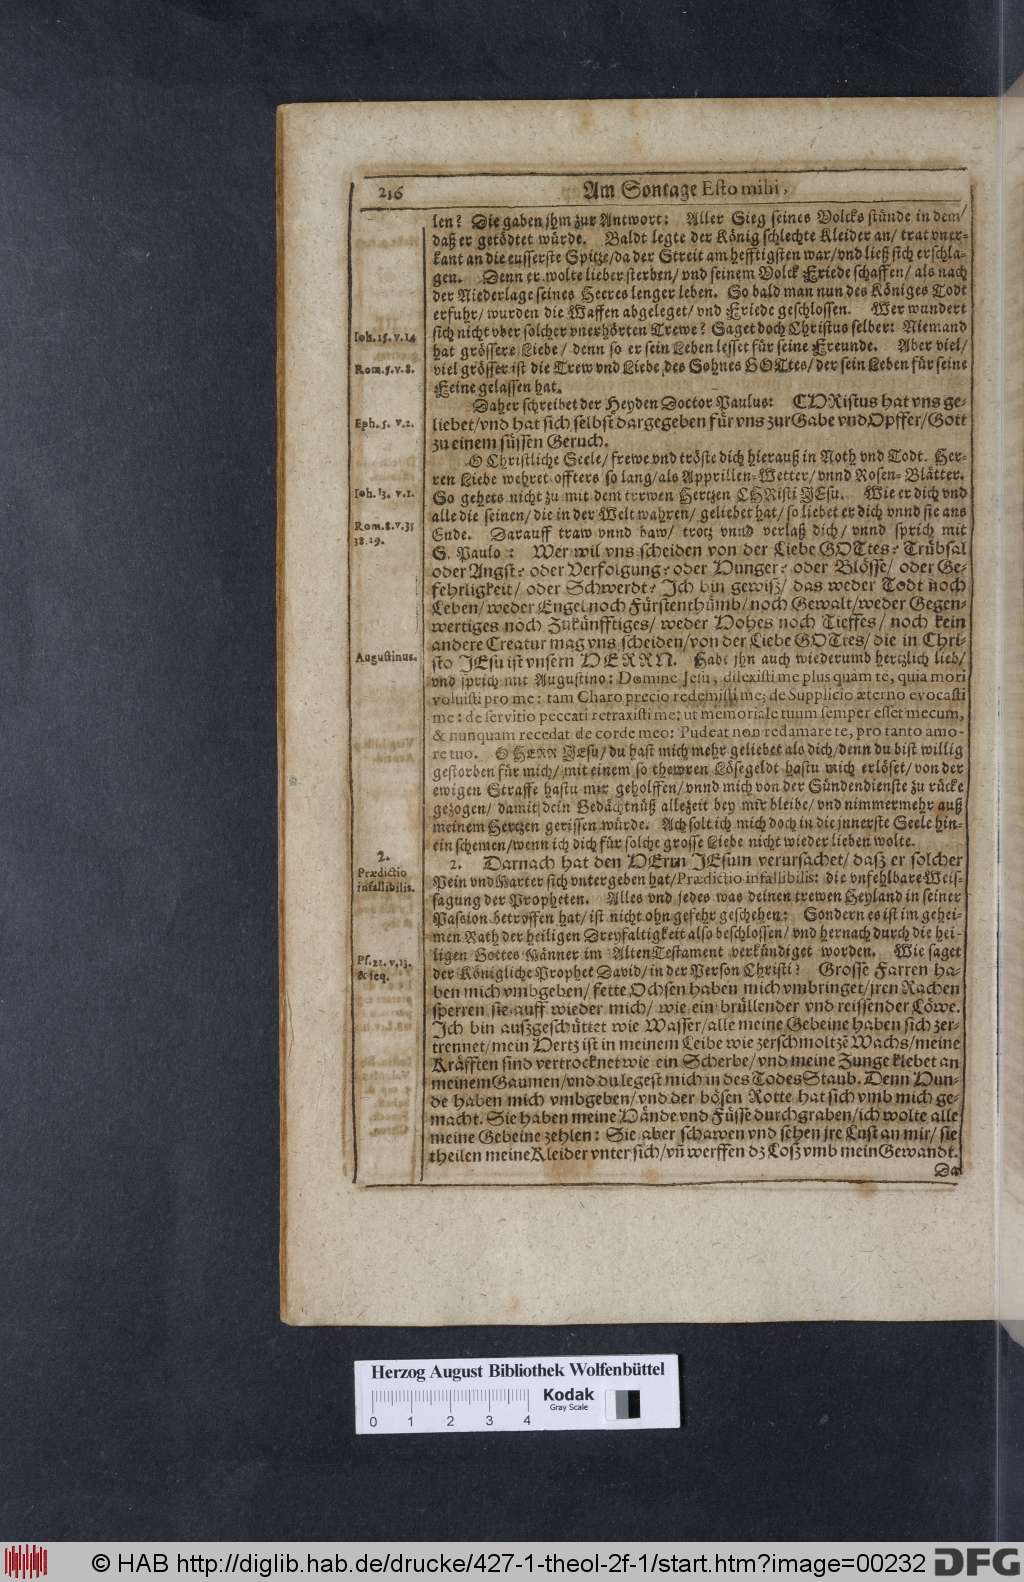 216 Am Sontage Esto mihi,
len? Die gaben jhm zur Antwort: Aller Sieg seines Volcks stünde in dem/
daß er getödtet würde. Baldt legte der König schlechte Kleider an/ trat vner-
kant an die eusserste Spitze/da der Streit am hefftigsten war/vnd ließ sich erschla-
gen. Denn er wolte lieber sterben/ vnd seinem Volck Friede schaffen/ als nach
der Niederlage seines Heeres lenger leben. So bald man nun des Königes Todt
erfuhr/ wurden die Waffen abgeleget/ vnd Friede geschlossen. Wer wundert
Joh. 15. v. 14
sich nicht vber solcher vnerhörten Trewe? Saget doch Christus selber: Niemand
hat grössere Liebe/ denn so er sein Leben lesset für seine Freunde. Aber viel/
Rom. 5. v. 8.
viel grösser ist die Trew vnd Liebe des Sohnes GOttes/ der sein Leben für seine
Feine gelassen hat.
Daher schreibet der Heyden Doctor Paulus: CHRistus hat vns ge-
Eph. 5. v. 2.
liebet/vnd hat sich selbst dargegeben für vns zur Gabe vnd Opffer/ Gott
zu einem süssen Geruch.
O Christliche Seele/ frewe vnd tröste dich hierauß in Noth vnd Todt. Her-
ren Liebe wehret offters so lang/als Apprillen-Wetter/ vnnd Rosen-Blätter.
Joh. 13. v. 1.
So gehets nicht zu mit dem trewen Hertzen CHRisti JEsu. Wie er dich vnd
alle die seinen/ die in der Welt wahren/ geliebet hat/ so liebet er dich vnnd sie ans
Rom. 8. v. 35
38. 29.
Ende. Darauff traw vnnd baw/ trotz vnnd verlaß dich/ vnnd sprich mit
S. Paulo: Wer wil vns scheiden von der Liebe GOttes? Trübsal
oder Angst? oder Verfolgung? oder Hunger? oder Blösse/ oder Ge-
fehrligkeit/ oder Schwerdt? Ich bin gewiß/ das weder Todt noch
Leben/ weder Engel noch Fürstenthümb/ noch Gewalt/weder Gegen-
wertiges noch Zukünfftiges/ weder Hohes noch Tieffes/ noch kein
andere Creatur mag vns scheiden/von der Liebe GOttes/ die in Chri-
Augustinus.
sto JEsu ist vnsern HERRN. Habe jhn auch wiederumb hertzlich lieb/
vnd sprich mit Augustino: Domine Jesu, dilexisti me plus quam te, quia mori
voluisti pro me: tam Charo precio redemisti me; de Supplicio æterno evocasti
me: de servitio peccati retraxisti me; ut memoriale tuum semper esset mecum,
& nunquam recedat de corde meo: Pudeat non redamare te, pro tanto amo-
re tuo. O HERR JEsu/ du hast mich mehr geliebet als dich/denn du bist willig
gestorben für mich/ mit einem so thewren Lösegeldt hastu mich erlöset/ von der
ewigen Straffe hastu mir geholffen/ vnnd mich von der Sündendienste zu rücke
gezogen/ damit dein Gedächtnüß allezeit bey mir bleibe/ vnd nimmermehr auß
meinem Hertzen gerissen würde. Ach solt ich mich doch in die jnnerste Seele hin-
ein schemen/wenn ich dich für solche grosse Liebe nicht wieder lieben wolte.
2.
Prædictio
infallibilis.
2. Darnach hat den HErrn JEsum verursachet/ daß er solcher
Pein vnd Marter sich vntergeben hat/Prædictio infallibilis: die vnfehlbare Weis-
sagung der Propheten. Alles vnd jedes was deinen trewen Heyland in seiner
Passion betroffen hat/ ist nicht ohn gefehr geschehen: Sondern es ist im gehei-
men Rath der heiligen Dreyfaltigkeit also beschlossen/ vnd hernach durch die hei-
ligen Gottes Männer im Alten Testament verkündiget worden. Wie saget
Ps. 22. v. 13.
& seq.
der Königliche Prophet David/ in der Person Christi? Grosse Farren ha-
ben mich vmbgeben/ fette Ochsen haben mich vmbringet/jren Rachen
sperren sie auff wieder mich/ wie ein brüllender vnd reissender Löwe.
Ich bin außgeschüttet wie Wasser/alle meine Gebeine haben sich zer-
trennet/mein Hertz ist in meinem Leibe wie zerschmoltzē Wachs/meine
Kräfften sind vertrocknet wie ein Scherbe/ vnd meine Zunge klebet an
meinem Gaumen/vnd du legest mich in des Todes Staub. Denn Hun-
de haben mich vmbgeben/ vnd der bösen Rotte hat sich vmb mich ge-
macht. Sie haben meine Hände vnd Füsse durchgraben/ich wolte alle
meine Gebeine zehlen: Sie aber schawen vnd sehen jre Lust an mir/ sie
theilen meine Kleider vnter sich/vñ werffen dz Loß vmb mein Gewandt.
Da
Herzog August Bibliothek Wolfenbüttel
Kodak
Gray Scale
0 1 2 3 4
© HAB http://diglib.hab.de/drucke/427-1-theol-2f-1/start.htm?image=00232 DFG